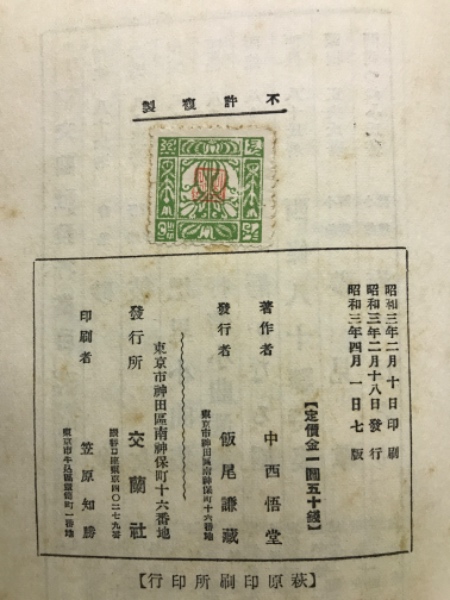 不許複製
昭和三年二月十日印刷
昭和三年二月十八日發行
昭和三年四月一日七版
【定價金一圓五十錢】
著作者 中西悟堂
發行者 飯尾謙藏
東京市神田區南神保町十六番地
東京市神田區南神保町十六番地
發行所 交蘭社
振替口座東京四〇二七九番
印刷者 笠原知勝
【萩原印刷所印行】